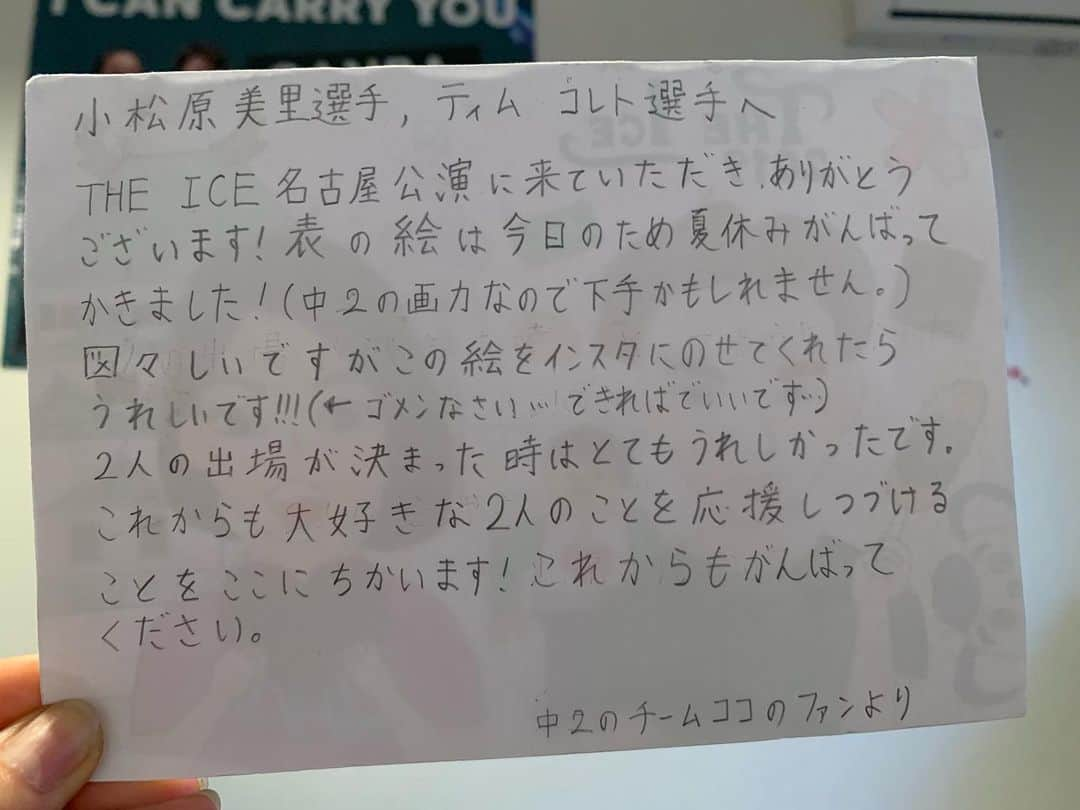 I CAN CARRY YOU
小松原美里選手, ティム コレト選手へ
THE ICE 名古屋公演に来ていただき、ありがとう
ございます!表の絵は今日のため夏休みがんばって
かきました!(中2の画力なので下手かもしれません。)
図々しいですがこの絵をインスタにのせてくれたら
うれしいです!!!(←ゴメンなさい…できればでいいです…)
2人の出場が決まった時はとてもうれしかったです。
これからも大好きな2人のことを応援しつづける
ことをここにちかいます!これからもがんばって
ください。
中2のチームココのファンより